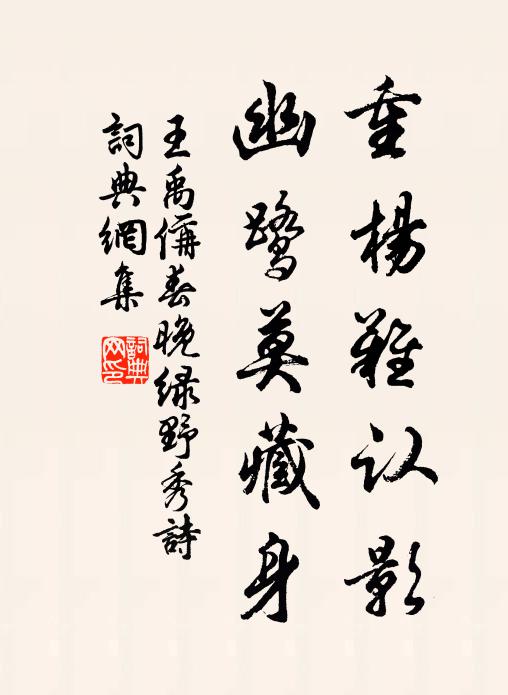 垂楊難认影
幽鷺莫藏身
王禹偁春晚绿野秀詩
詞典網集
詞典网印